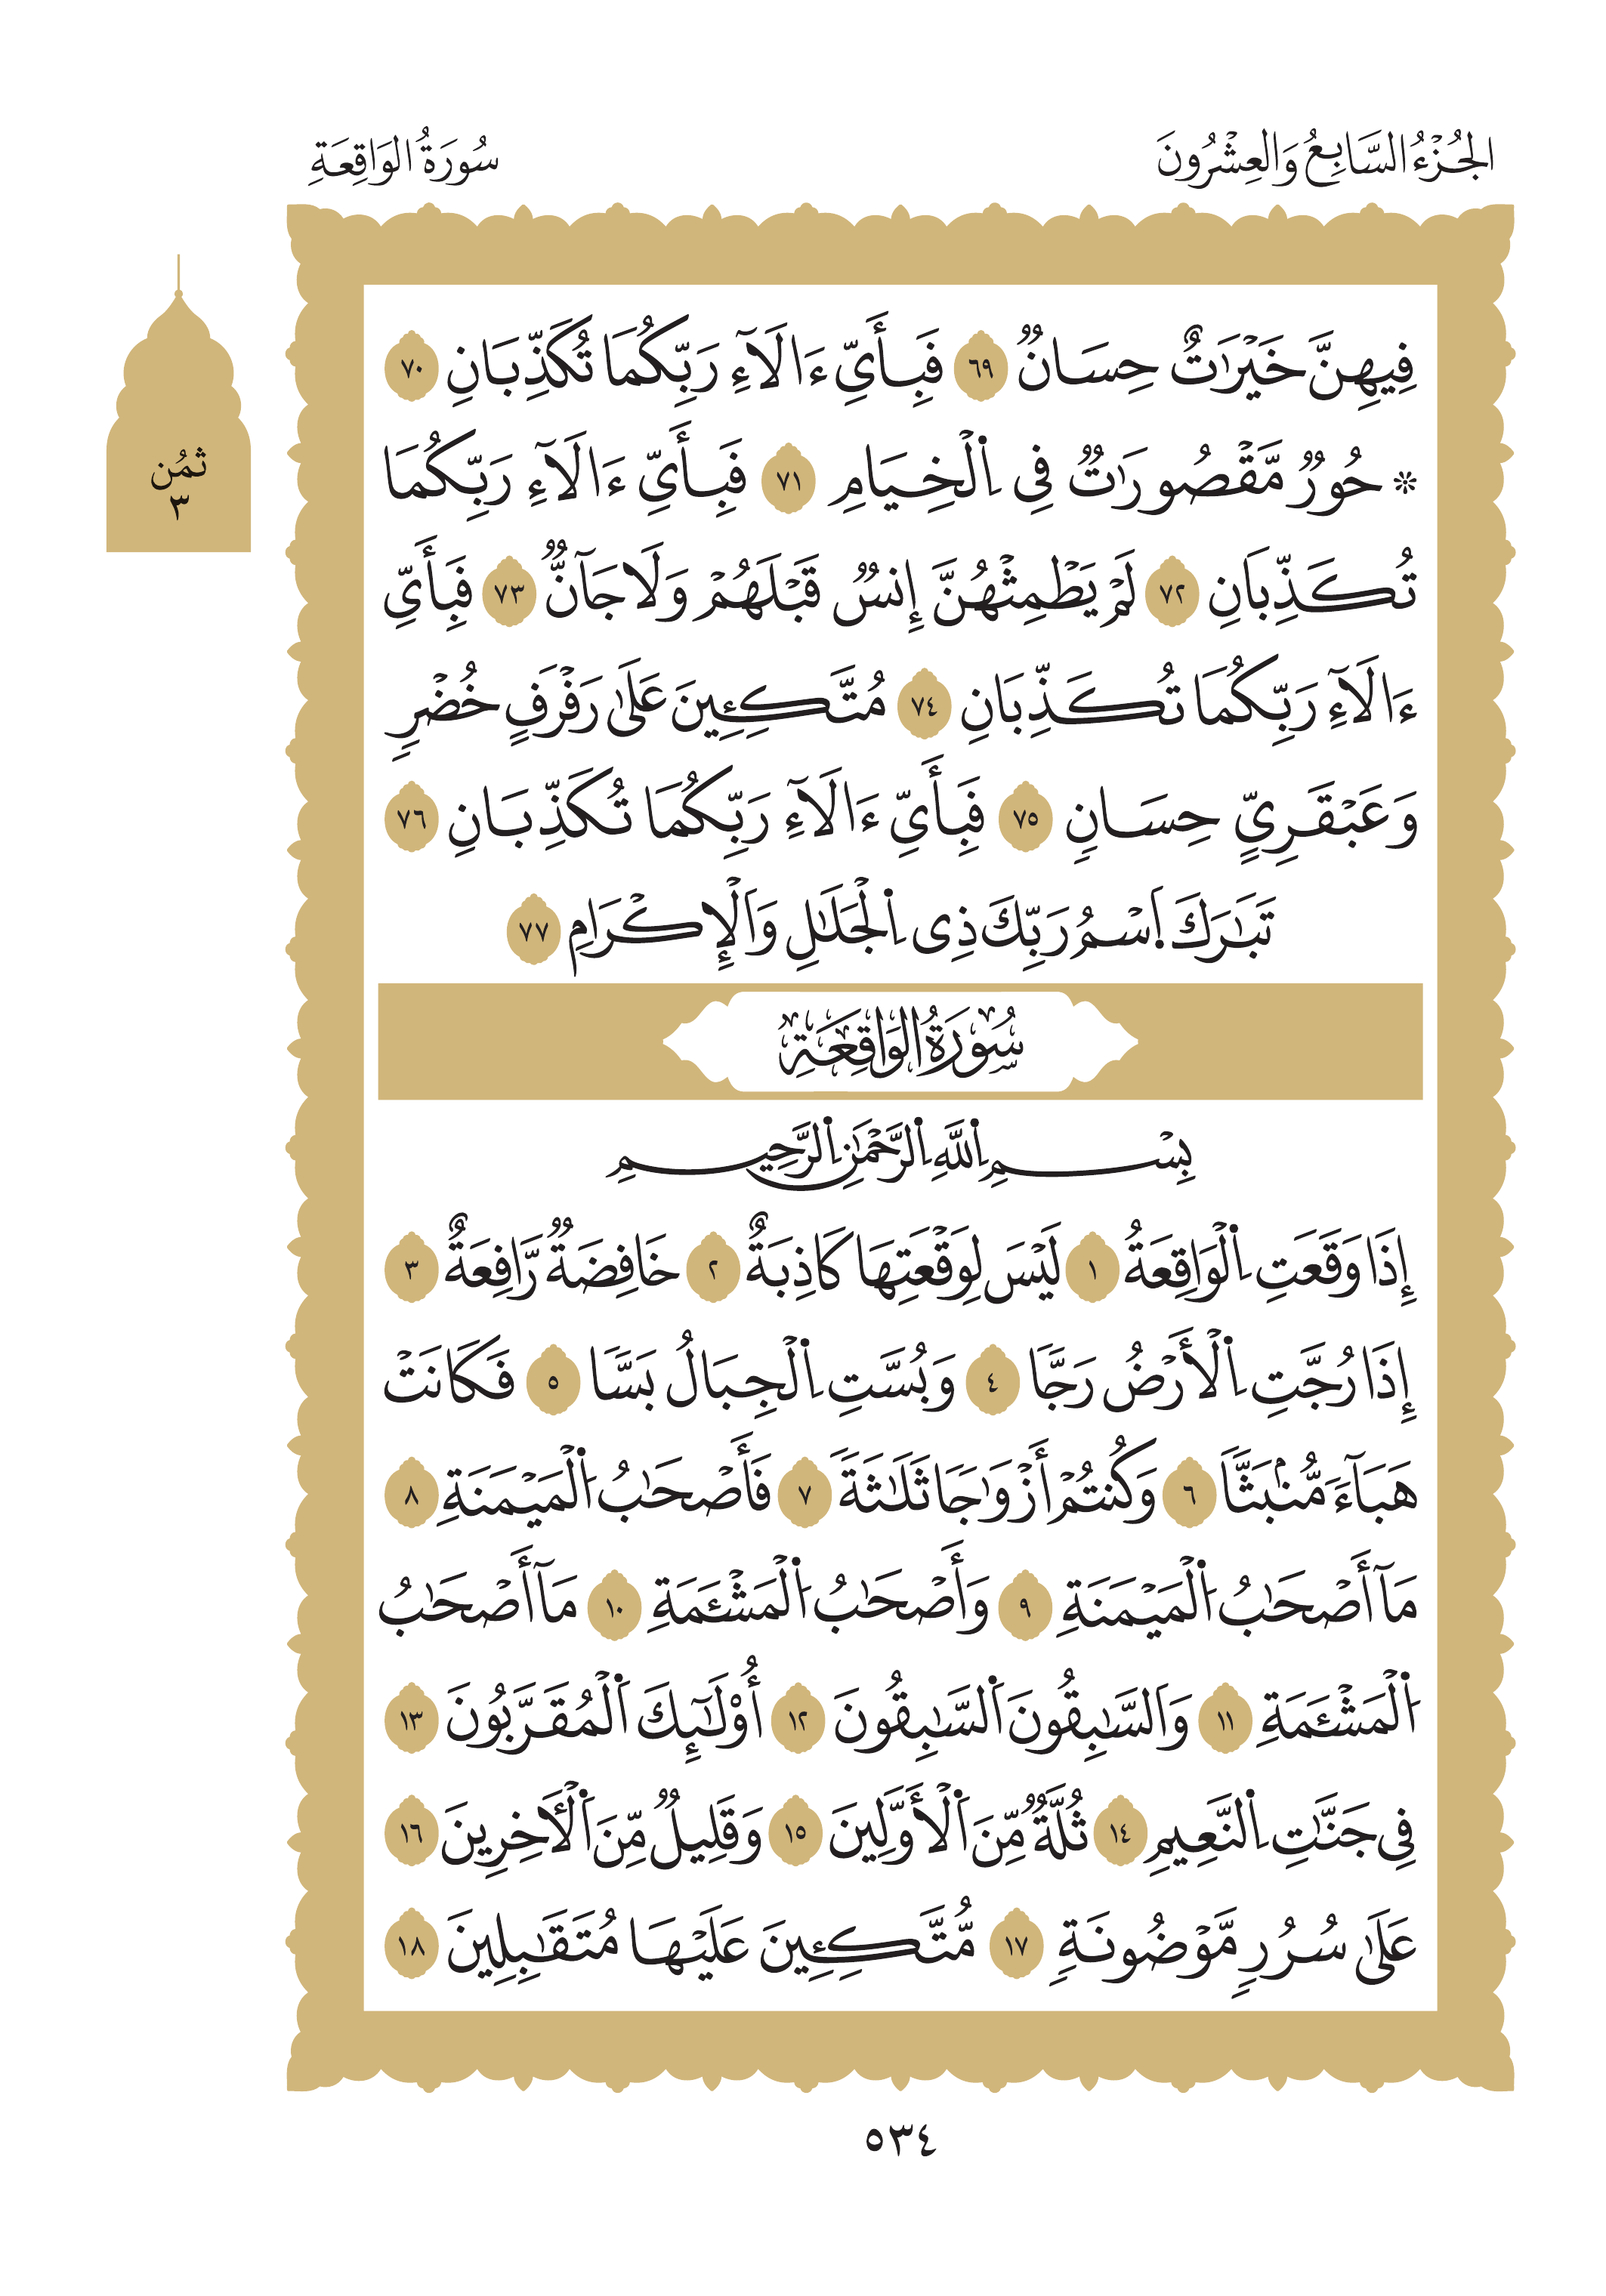 الجُزْءُ السَّابِعُ وَالعِشْرُونَ
سُورَةُ الوَاقِعَةِ
ثمُن
٣
فِيهِنَّ خَيْرَٰتٌ حِسَانٞ ٦٩ فَبِأَيِّ ءَالَآءِ رَبِّكُمَا تُكَذِّبَانِ ٧٠
* حُورٞ مَّقْصُورَٰتٞ فِي اِ۬لْخِيَامِ ٧١ فَبِأَيِّ ءَالَآءِ رَبِّكُمَا
تُكَذِّبَانِ ٧٢ لَمْ يَطْمِثْهُنَّ إِنسٞ قَبْلَهُمْ وَلَا جَآنّٞ ٧٣ فَبِأَيِّ
ءَالَآءِ رَبِّكُمَا تُكَذِّبَانِ ٧٤ مُتَّكِـِٕينَ عَلَىٰ رَفْرَفٍ خُضْرٖ
وَعَبْقَرِيٍّ حِسَانٖ ٧٥ فَبِأَيِّ ءَالَآءِ رَبِّكُمَا تُكَذِّبَانِ ٧٦
تَبَٰرَكَ اَ۪سْمُ رَبِّكَ ذِي اِ۬لْجَلَٰلِ وَالْإِكْرَامِ ٧٧
سُورَةُ الوَاقِعَةِ
بِسْمِ اِ۬للَّهِ اِ۬لرَّحْمَٰنِ اِ۬لرَّحِيمِ
إِذَا وَقَعَتِ اِ۬لْوَاقِعَةُ ١ لَيْسَ لِوَقْعَتِهَا كَاذِبَةٌ ٢ خَافِضَةٞ رَّافِعَةٌ ٣
إِذَا رُجَّتِ اِ۬لْأَرْضُ رَجّٗا ٤ وَبُسَّتِ اِ۬لْجِبَالُ بَسّٗا ٥ فَكَانَتْ
هَبَآءٗ مُّنۢبَثّٗا ٦ وَكُنتُمْ أَزْوَٰجٗا ثَلَٰثَةٗ ٧ فَأَصْحَٰبُ اُ۬لْمَيْمَنَةِ ٨
مَآ أَصْحَٰبُ اُ۬لْمَيْمَنَةِ ٩ وَأَصْحَٰبُ اُ۬لْمَشْـَٔمَةِ ١٠ مَآ أَصْحَٰبُ
اُ۬لْمَشْـَٔمَةِ ١١ وَالسَّٰبِقُونَ اَ۬لسَّٰبِقُونَ ١٢ أُوْلَٰٓئِكَ اَ۬لْمُقَرَّبُونَ ١٣
فِي جَنَّٰتِ اِ۬لنَّعِيمِ ١٤ ثُلَّةٞ مِّنَ اَ۬لْأَوَّلِينَ ١٥ وَقَلِيلٞ مِّنَ اَ۬لْأٓخِرِينَ ١٦
عَلَىٰ سُرُرٖ مَّوْضُونَةٖ ١٧ مُّتَّكِـِٕينَ عَلَيْهَا مُتَقَٰبِلِينَ ١٨
٥٣٤